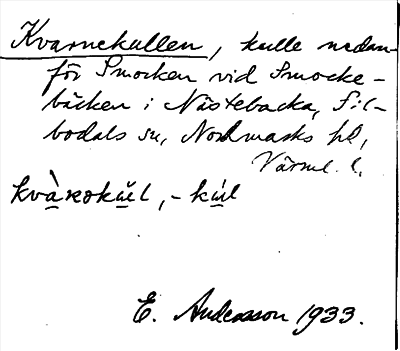 Kvarnekullen, kulle nedan-
för Smocken vid Smocke-
bäcken i Nästebacka, Sil-
bodals sn, Nordmarks hd,
Värml. l.
kvàrnokùl, -kúl
E. Andersson 1933.